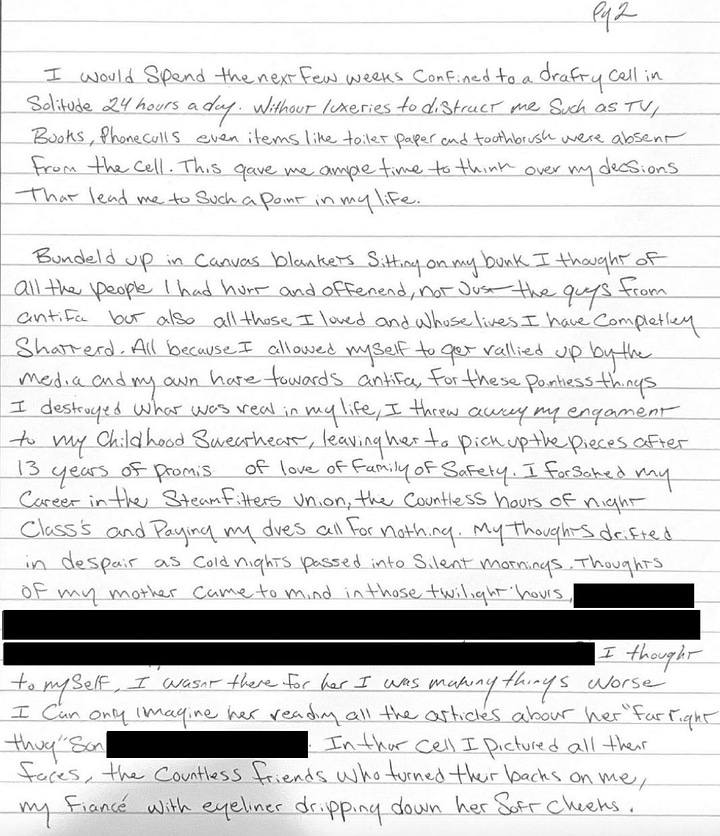 Pg 2
I would Spend the next Few weeks Confined to a drafty cell in
Solitude 24 hours a day. Without luxeries to distruct me Such as TV,
Books, Phonecalls even items like toilet paper and toothbrush were absent
From the cell. This gave me ample time to think over my decssions
That lead me to Such a point in my life.
Bundeld up in Canvas blankets Sitting on my bunk I thought of
all the people I had hurt and offenend, not Just the guys from
antifa but also all those I loved and whose lives I have Completley
Shatterd. All because I allowed myself to get rallied up by the
media and my own hate towards antifa, For these pointless things
I destroyed what was real in my life, I threw away my engament
to my Childhood Sweetheart, leaving her to pick up the pieces after
13 years of promis of love of Family of Safety. I Forsaked my
Career in the Steamfitters Union, the Countless hours of night
Class's and Paying my dues all For nothing. My Thoughts drifted
in despair as Cold nights passed into Silent mornings. Thoughts
OF my mother Came to mind in those twilight hours,
I thought
to myself, I wasnt there for her I was making things worse
I Can only imagine her reading all the articles about her "Far right
thug" Son . In that cell I pictured all their
Faces, the Countless Friends who turned their backs on me,
my Fiancé with eyeliner dripping down her Soft Cheeks.